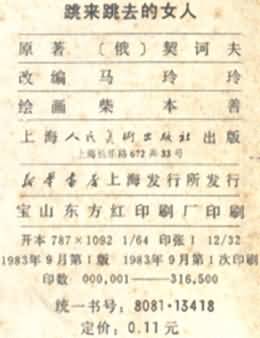 跳来跳去的女人
原著〔俄〕契诃夫
改编 马玲玲
绘画 柴本善
上海人民美術出版社出版
上海长乐路672弄33号
新华書店上海发行所发行
宝山东方红印刷厂印刷
开本 787×1092 1/64 印张 1 12/32
1983年9月第1版 1983年9月第1次印刷
印数 000,001——316,500
统一书号：8081·13418
定价：0.11元